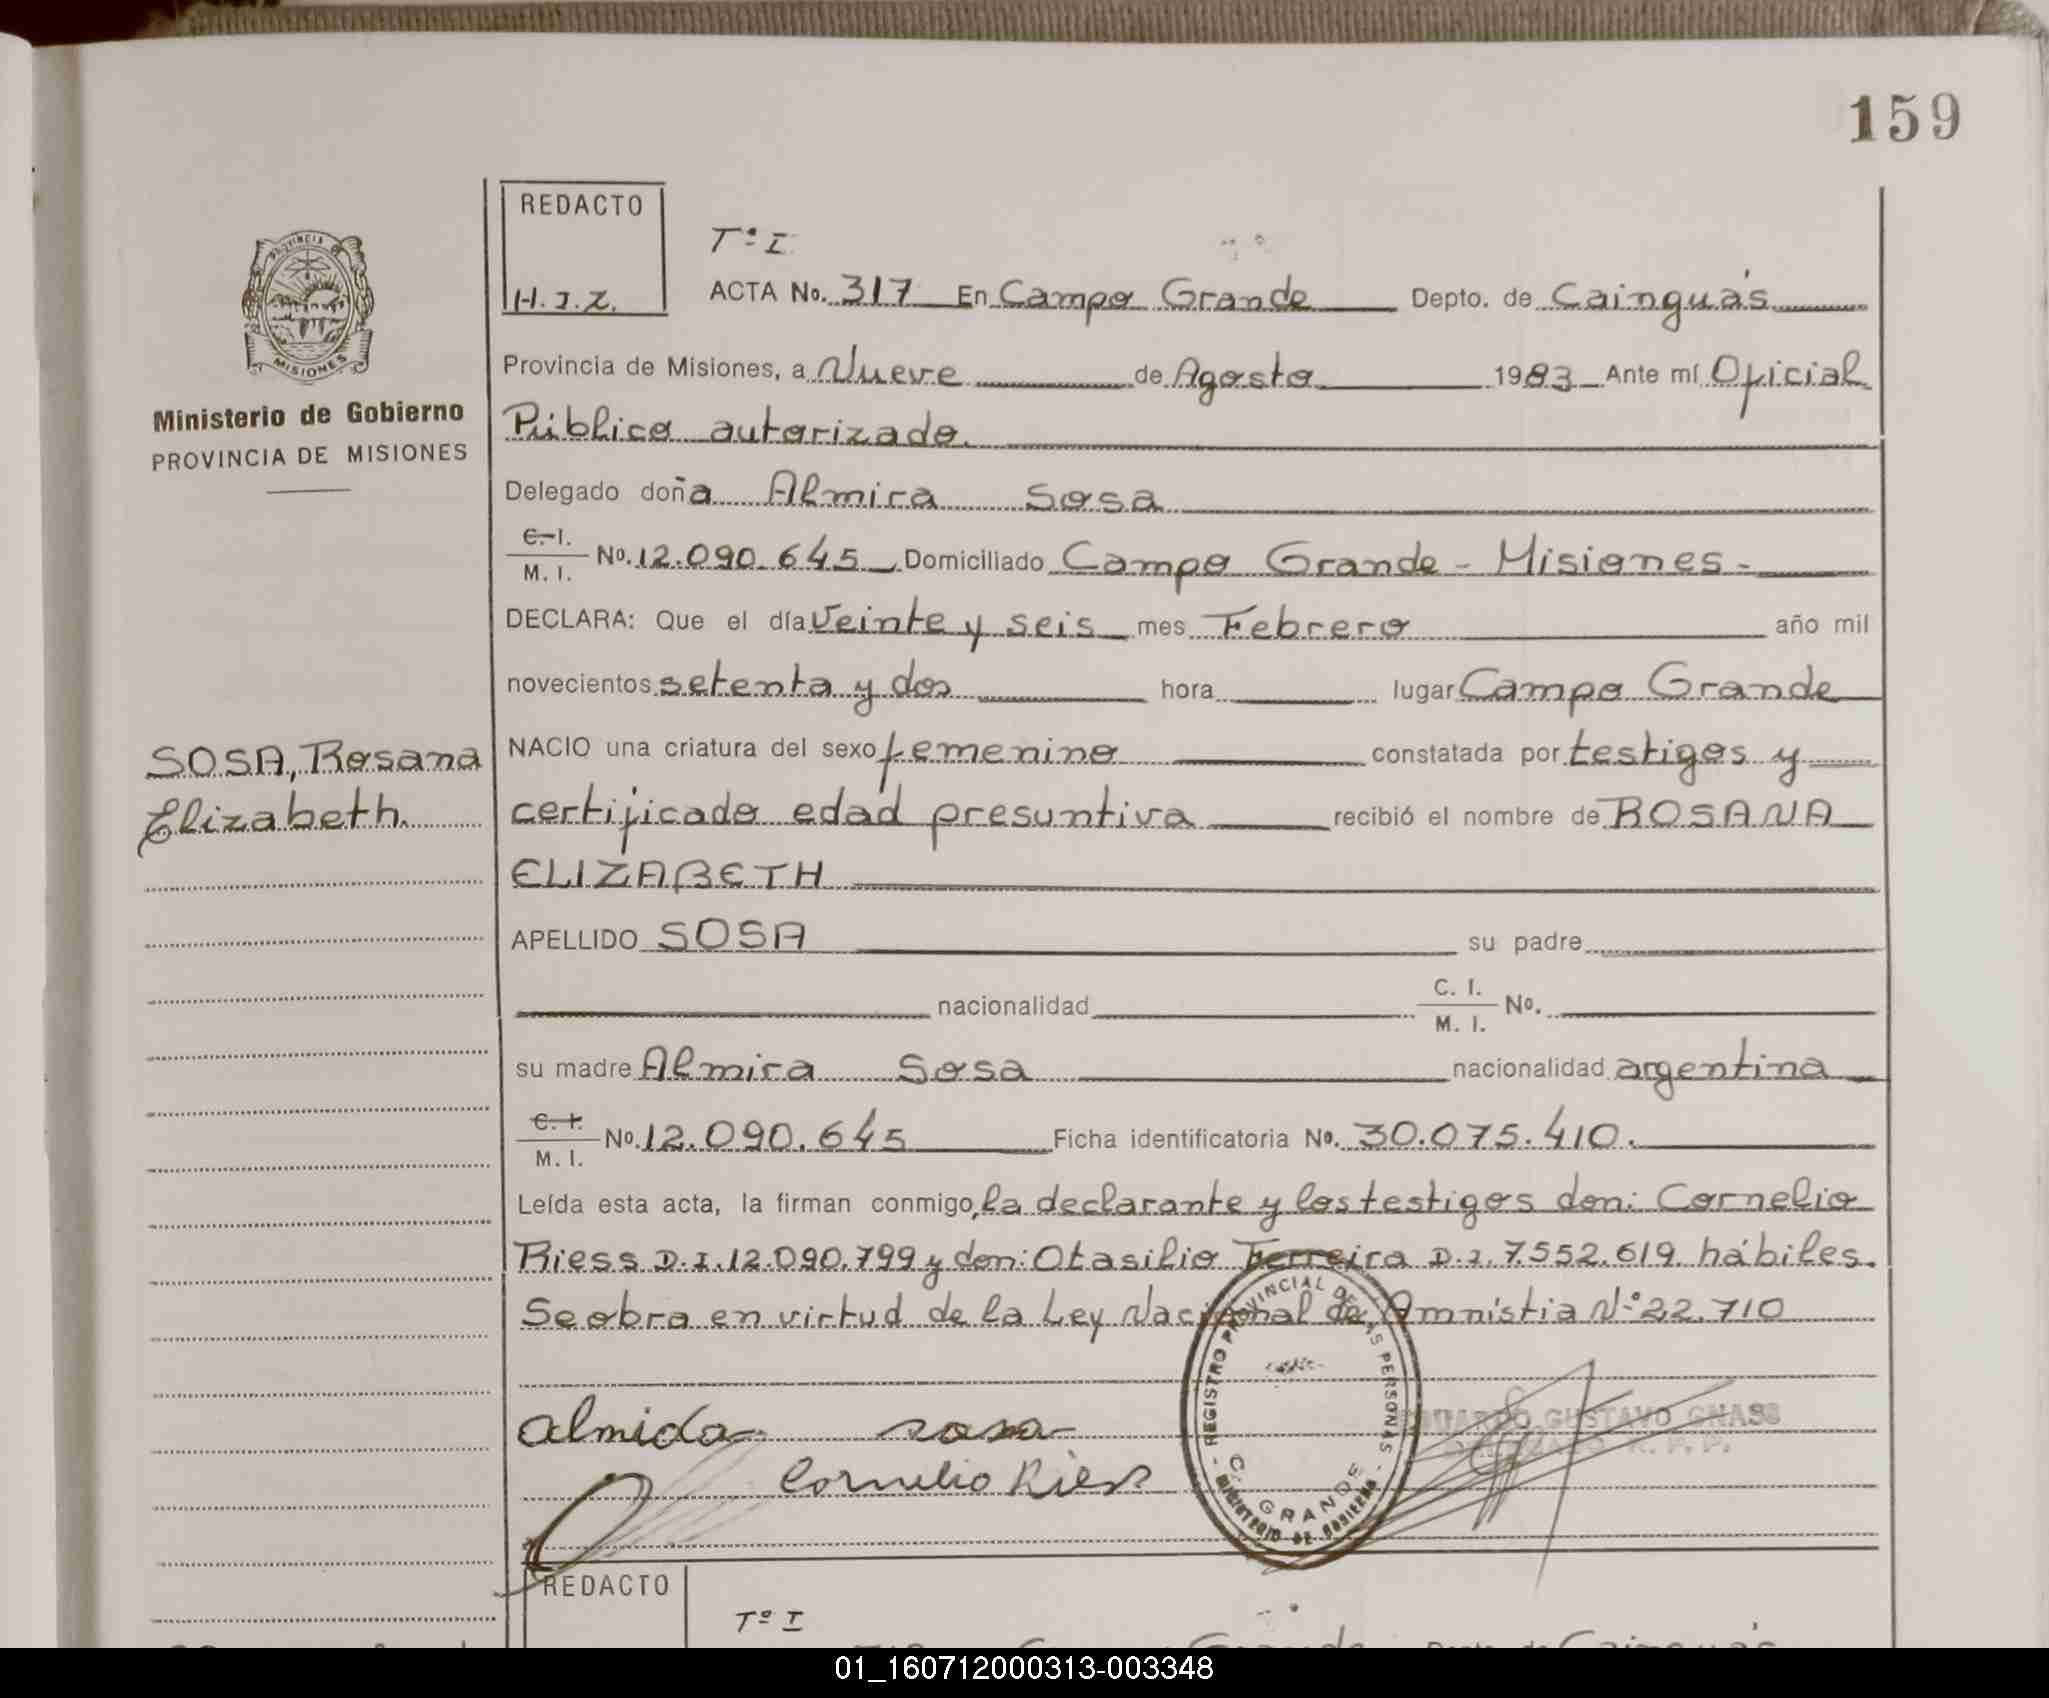 159
REDACTO
H.J.Z.
Tº I
ACTA No. 317 En Campo Grande Depto. de Cainguás
Provincia de Misiones, a Nueve de Agosto 1983 Ante mí Oficial
Público autorizado.
Delegado doña Almira Sosa
C. I. / M. I. No. 12.090.645 Domiciliado Campo Grande - Misiones -
DECLARA: Que el día Veinte y seis mes Febrero año mil
novecientos setenta y dos hora lugar Campo Grande
NACIO una criatura del sexo femenino constatada por testigos y
certificado edad presuntiva recibió el nombre de ROSANA
ELIZABETH
APELLIDO SOSA su padre
nacionalidad C. I. / M. I. No.
su madre Almira Sosa nacionalidad argentina
C. I. / M. I. No. 12.090.645 Ficha identificatoria No. 30.075.410.
Leída esta acta, la firman conmigo, la declarante y los testigos don: Cornelio
Riess D.I. 12.090.799 y don: Otasilio Ferreira D.I. 7.552.619. hábiles.
Se obra en virtud de la Ley Nacional de Amnistia Nº 22.710
almida sosa
Cornelio Riess
REGISTRO PROVINCIAL DE LAS PERSONAS
C. GRANDE
MINISTERIO DE GOBIERNO
EDUARDO GUSTAVO GNASS
DELEGADO R. P. P.
PROVINCIA DE
MISIONES
Ministerio de Gobierno
PROVINCIA DE MISIONES
SOSA, Rosana
Elizabeth.
REDACTO
Tº I
01_160712000313-003348